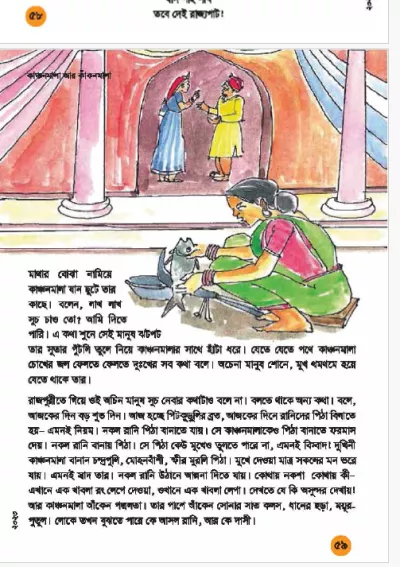 ৫৮
তবে সেই রাজ্যপাট!
কাঞ্চনমালা আর কাঁকনমালা
মাথার বোঝা নামিয়ে
কাঞ্চনমালা যান ছুটে তার
কাছে। বলেন, লাখ লাখ
সুচ চাও তো? আমি দিতে
পারি। এ কথা শুনে সেই মানুষ ঝটপট
তার সুতার পুঁটলি তুলে নিয়ে কাঞ্চনমালার সাথে হাঁটা ধরে। যেতে যেতে পথে কাঞ্চনমালা
চোখের জল ফেলতে ফেলতে দুঃখের সব কথা বলে। অচেনা মানুষ শোনে, মুখ থমথমে হয়ে
যেতে থাকে তার।
রাজপুরীতে গিয়ে ওই অচিন মানুষ সুচ নেবার কথাটাও বলে না। বলতে থাকে অন্য কথা। বলে,
আজকের দিন বড় শুভ দিন। আজ হচ্ছে পিটকুড়ুলির ব্রত, আজকের দিনে রানিদের পিঠা বিলাতে
হয়– এমনই নিয়ম। নকল রানি পিঠা বানাতে যায়। সে কাঞ্চনমালাকেও পিঠা বানাতে ফরমাস
দেয়। নকল রানি বানায় পিঠা। সে পিঠা কেউ মুখেও তুলতে পারে না, এমনই বিস্বাদ। দুখিনী
কাঞ্চনমালা বানান চন্দ্রপুলি, মোহনবাঁশী, ক্ষীর মুরলি পিঠা। মুখে দেওয়া মাত্র সকলের মন ভরে
যায়। এমনই স্বাদ তার। নকল রানি উঠানে আল্পনা দিতে যায়। কোথায় নকশা কোথায় কী–
এখানে এক খাবলা রং লেপে দেওয়া, ওখানে এক খাবলা লেপা। দেখতে যে কি অসুন্দর দেখায়!
আর কাঞ্চনমালা আঁকেন পদ্মলতা। তার পাশে আঁকেন সোনার সাত কলস, ধানের ছড়া, ময়ূর-
পুতুল। লোকে তখন বুঝতে পারে কে আসল রানি, আর কে দাসী।
৫৯